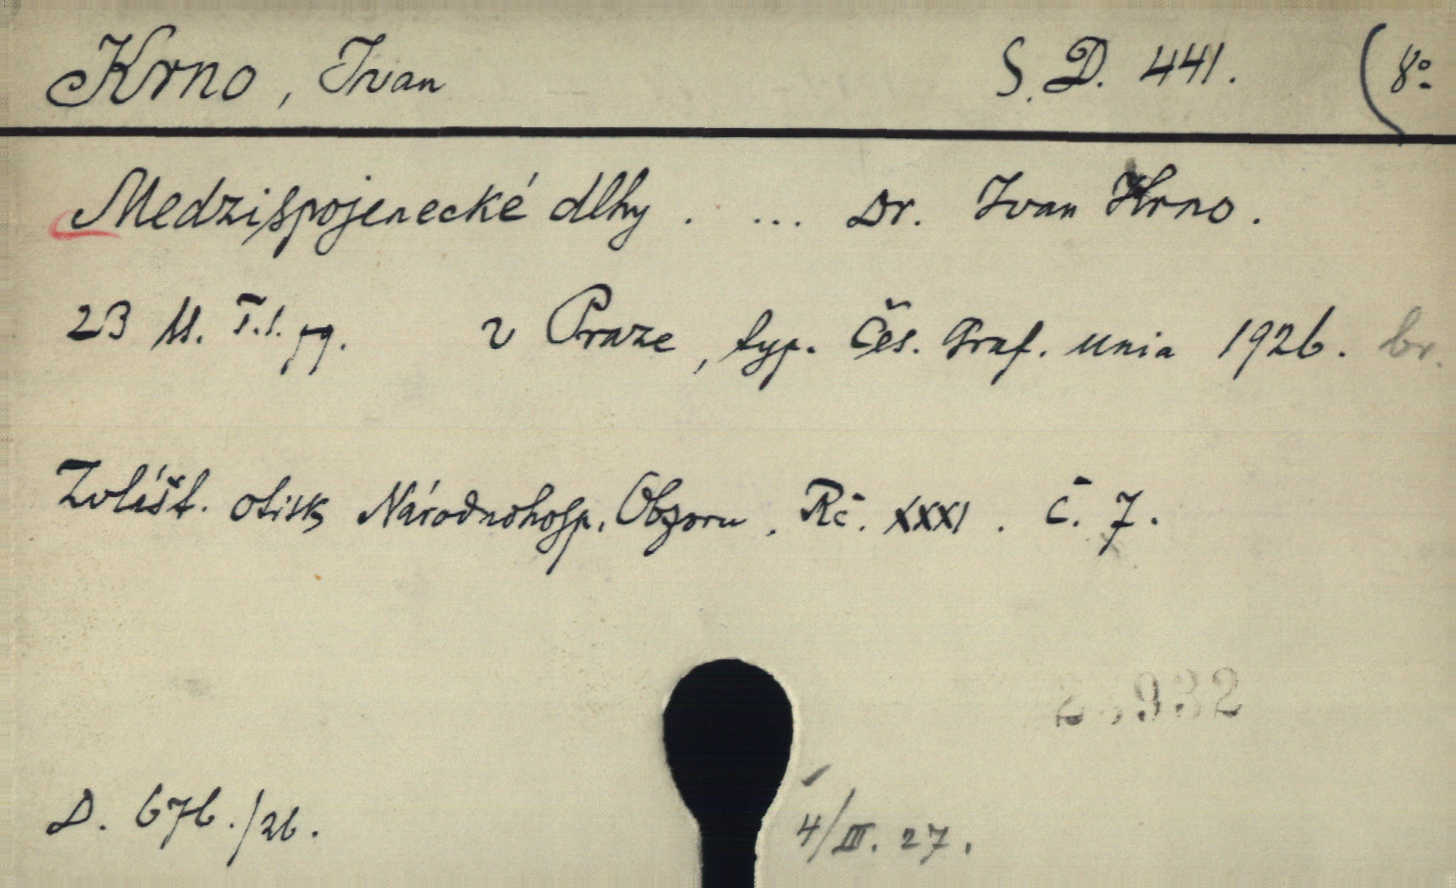 Krno, Ivan S. D. 441. (8°
Medzispojenecké dlhy. ... Dr. Ivan Krno.
23 ll. T.l. pg. v Praze, typ. Čes. Graf. unia 1926. br.
Zvlášt. otisk Národnohosp. Obzoru. Rč. XXXI. č. 7.
D. 676./26.
4/III. 27.